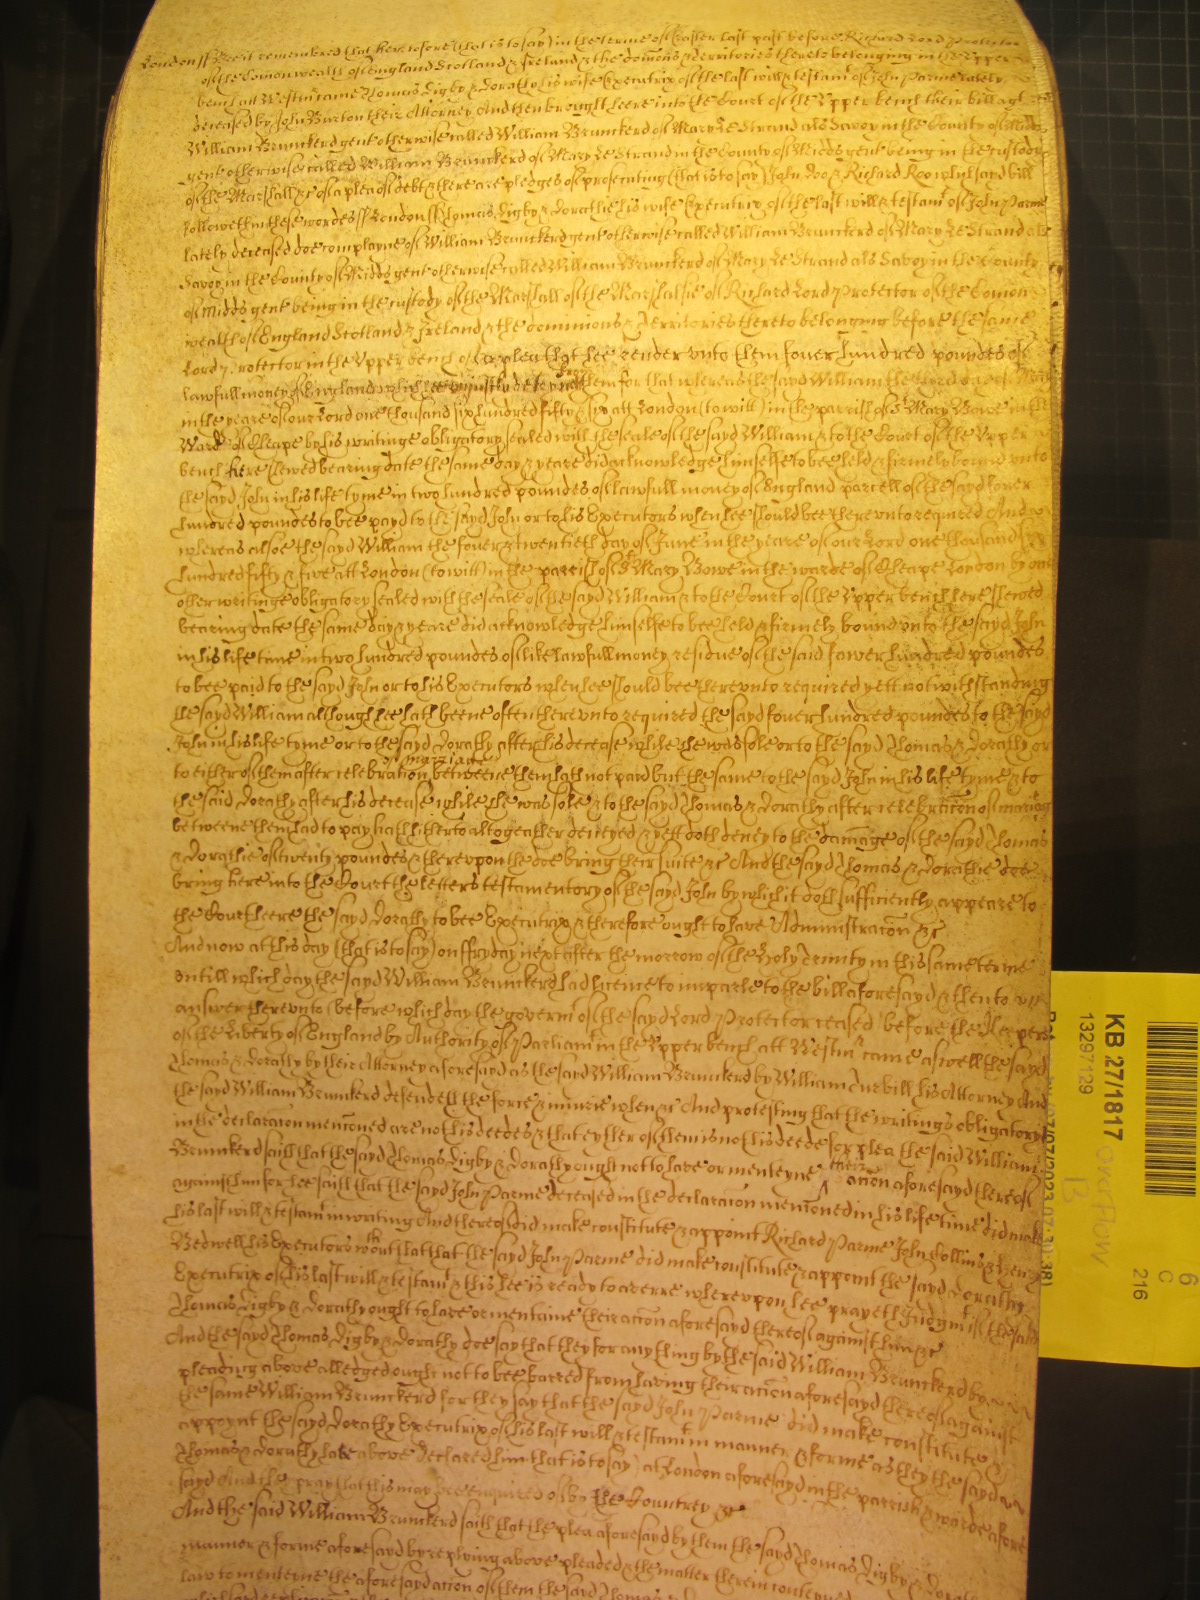 London ss Bee it remembred that heretofore (that is to say) in the terme of Easter last past before Richard Lord Protector
of the Comonwealth of England Scotland & Ireland & the dominions & territories thereto belonging in the Upper
bench att Westm came Thomas Digby & Dorathie his wife Executrix of the last will & testam of John Parme lately
deceased by John Burton their Attorney And then brought heere into the Court of the Upper bench their bill agt
William Brunckerd gent otherwise called William Brunckerd of Mary Le Strand als Savoy in the County of Midds
gent otherwise called William Brunckerd of Mary Le Strand in the County of Midds gent being in the custody
of the Marshall &c of a plea of debt & there are pledges of prosecuting (that is to say) John Doo & Richard Roo which sayd bill
followeth in these wordes ss London ss Thomas Digby & Dorathie his wife Executrix of the last will & testam of John Parme
lately deceased doe complayne of William Brunckerd gent otherwise called William Brunckerd of Mary Le Strand als
Savoy in the County of Midds gent otherwise called William Brunckerd of Mary Le Strand als Savoy in the County
of Midds gent being in the custody of the Marshall of the Marshalsie of Richard Lord Protector of the Comon
wealth of England Scotland & Ireland & the dominions & Territories thereto belonging before the same
Lord Protector in the Upper bench of a plea that hee render unto them fower hundred poundes of
lawfull money of England which hee uniustly deteyneth from them for that whereas the sayd William the
in the yeare of our Lord one thousand six hundred fifty & six att London (to witt) in the parrish of St Mary Bowe in the
Ward of Cheape by his writinge obligatory sealed with the seale of the sayd William & to the Court of the Upper
bench here shewed bearing date the same day & yeare did acknowledge himselfe to bee held & firmely bound unto
the sayd John in his life tyme in two hundred poundes of lawfull money of England parcell of the sayd fower
hundred poundes to bee payd to the sayd John or to his Executors when hee should bee thereunto required And
whereas alsoe the sayd William the fower & twentieth day of June in the yeare of our Lord one thousand six
hundred fifty & five att London (to witt) in the parrish of St Mary Bowe in the warde of Cheape London by one
other writinge obligatory sealed with the seale of the sayd William & to the Court of the Upper bench here shewed
bearing date the same day & yeare did acknowledge himselfe to bee held & firmely bound unto the sayd John
in his life time in two hundred poundes of like lawfull money residue of the said fower hundred poundes
to bee paid to the sayd John or to his Executors when hee should bee thereunto required yett notwithstanding
the sayd William although hee hath beene often thereunto required the sayd fower hundred poundes to the sayd
John in his life tyme or to the sayd Dorathy after his decease while she was sole or to the sayd Thomas & Dorathy or
to either of them after celebration of marriage betweene them hath not paid but the same to the sayd John in his life tyme & to
the said Dorathy after his decease while she was sole & to the sayd Thomas & Dorathy after celebracon of mariag
betweene them had to pay hath hitherto altogeather deneyed & yett doth deney to the damage of the sayd Thomas
& Dorathie of twenty poundes & thereupon the doe bring their suite &c And the sayd Thomas & Dorathie doe
bring here into the Court the letters testamentory of the sayd John by which it doth sufficiently appeare to
the Court heere the sayd Dorathy to bee Executrix & therefore ought to have Administracon &c
And now at this day (that is to say) on ffryday next after the morrow of the Holy Trinity in this same terme
untill which day the sayd William Brunckerd had licence to imparle to the bill aforesayd & then to
answer thereunto (before which day the governmt of the sayd Lord Protector ceased) before the Keepers
of the Liberty of England by Authority of Parliamt in the Upper bench att Westm came aswell the sayd
Thomas & Dorathy by their Attorney aforesayd as the sayd William Brunckerd by William Turbill his Attorney And
the sayd William Brunckerd defendeth the force & iniurie when &c And protesting that the writings obligatory
in the declaracon menconed are not his deedes & that eyther of them is not his deede for plea the said William
Brunckerd saith that the sayd Thomas Digby & Dorathy ought not to have or menteyne their acion aforesayd thereof
against him for hee saith that the sayd John Parme deceased in the declaracon menconed in his life time did make
his last will & testamt in writing And thereof did make constitute & appoint Richard Parme John Collins & Henry
Bedwell his Executors wthout that that the sayd John Parme did make constitute & appoint the sayd Dorathy
Executrix of his last will & testamt & this hee is ready to averre whereupon hee prayeth Judgmt if the said
Thomas Digby & Dorathy ought to have or mentaine their acion aforesayd thereof against him &c
And the sayd Thomas Digby & Dorathy doe say that they for any thing by the said William Brunckerd by
pleading above alledged ought not to bee barred from having their acion aforesayd thereof against
the same William Brunckerd for they say that the sayd John Parme did make constitute &
appoynt the sayd Dorathy Executrix of his last will & testamt in manner & forme as they the sayd
Thomas & Dorathy have above declared him that is to say) at London aforesayd in the parrish & warde afore
sayd And the pray that this may bee enquired of by the Countrey &c
And the said William Brunckerd saith that the plea aforesayd by them the sayd Thomas Digby & Dorathy
manner & forme aforesayd by replying above pleaded & the matter therein conteyned
law to menteine the aforesayd acion of them the sayd Thomas
KB 27/1817
13297129
overflow
B
216
C
6